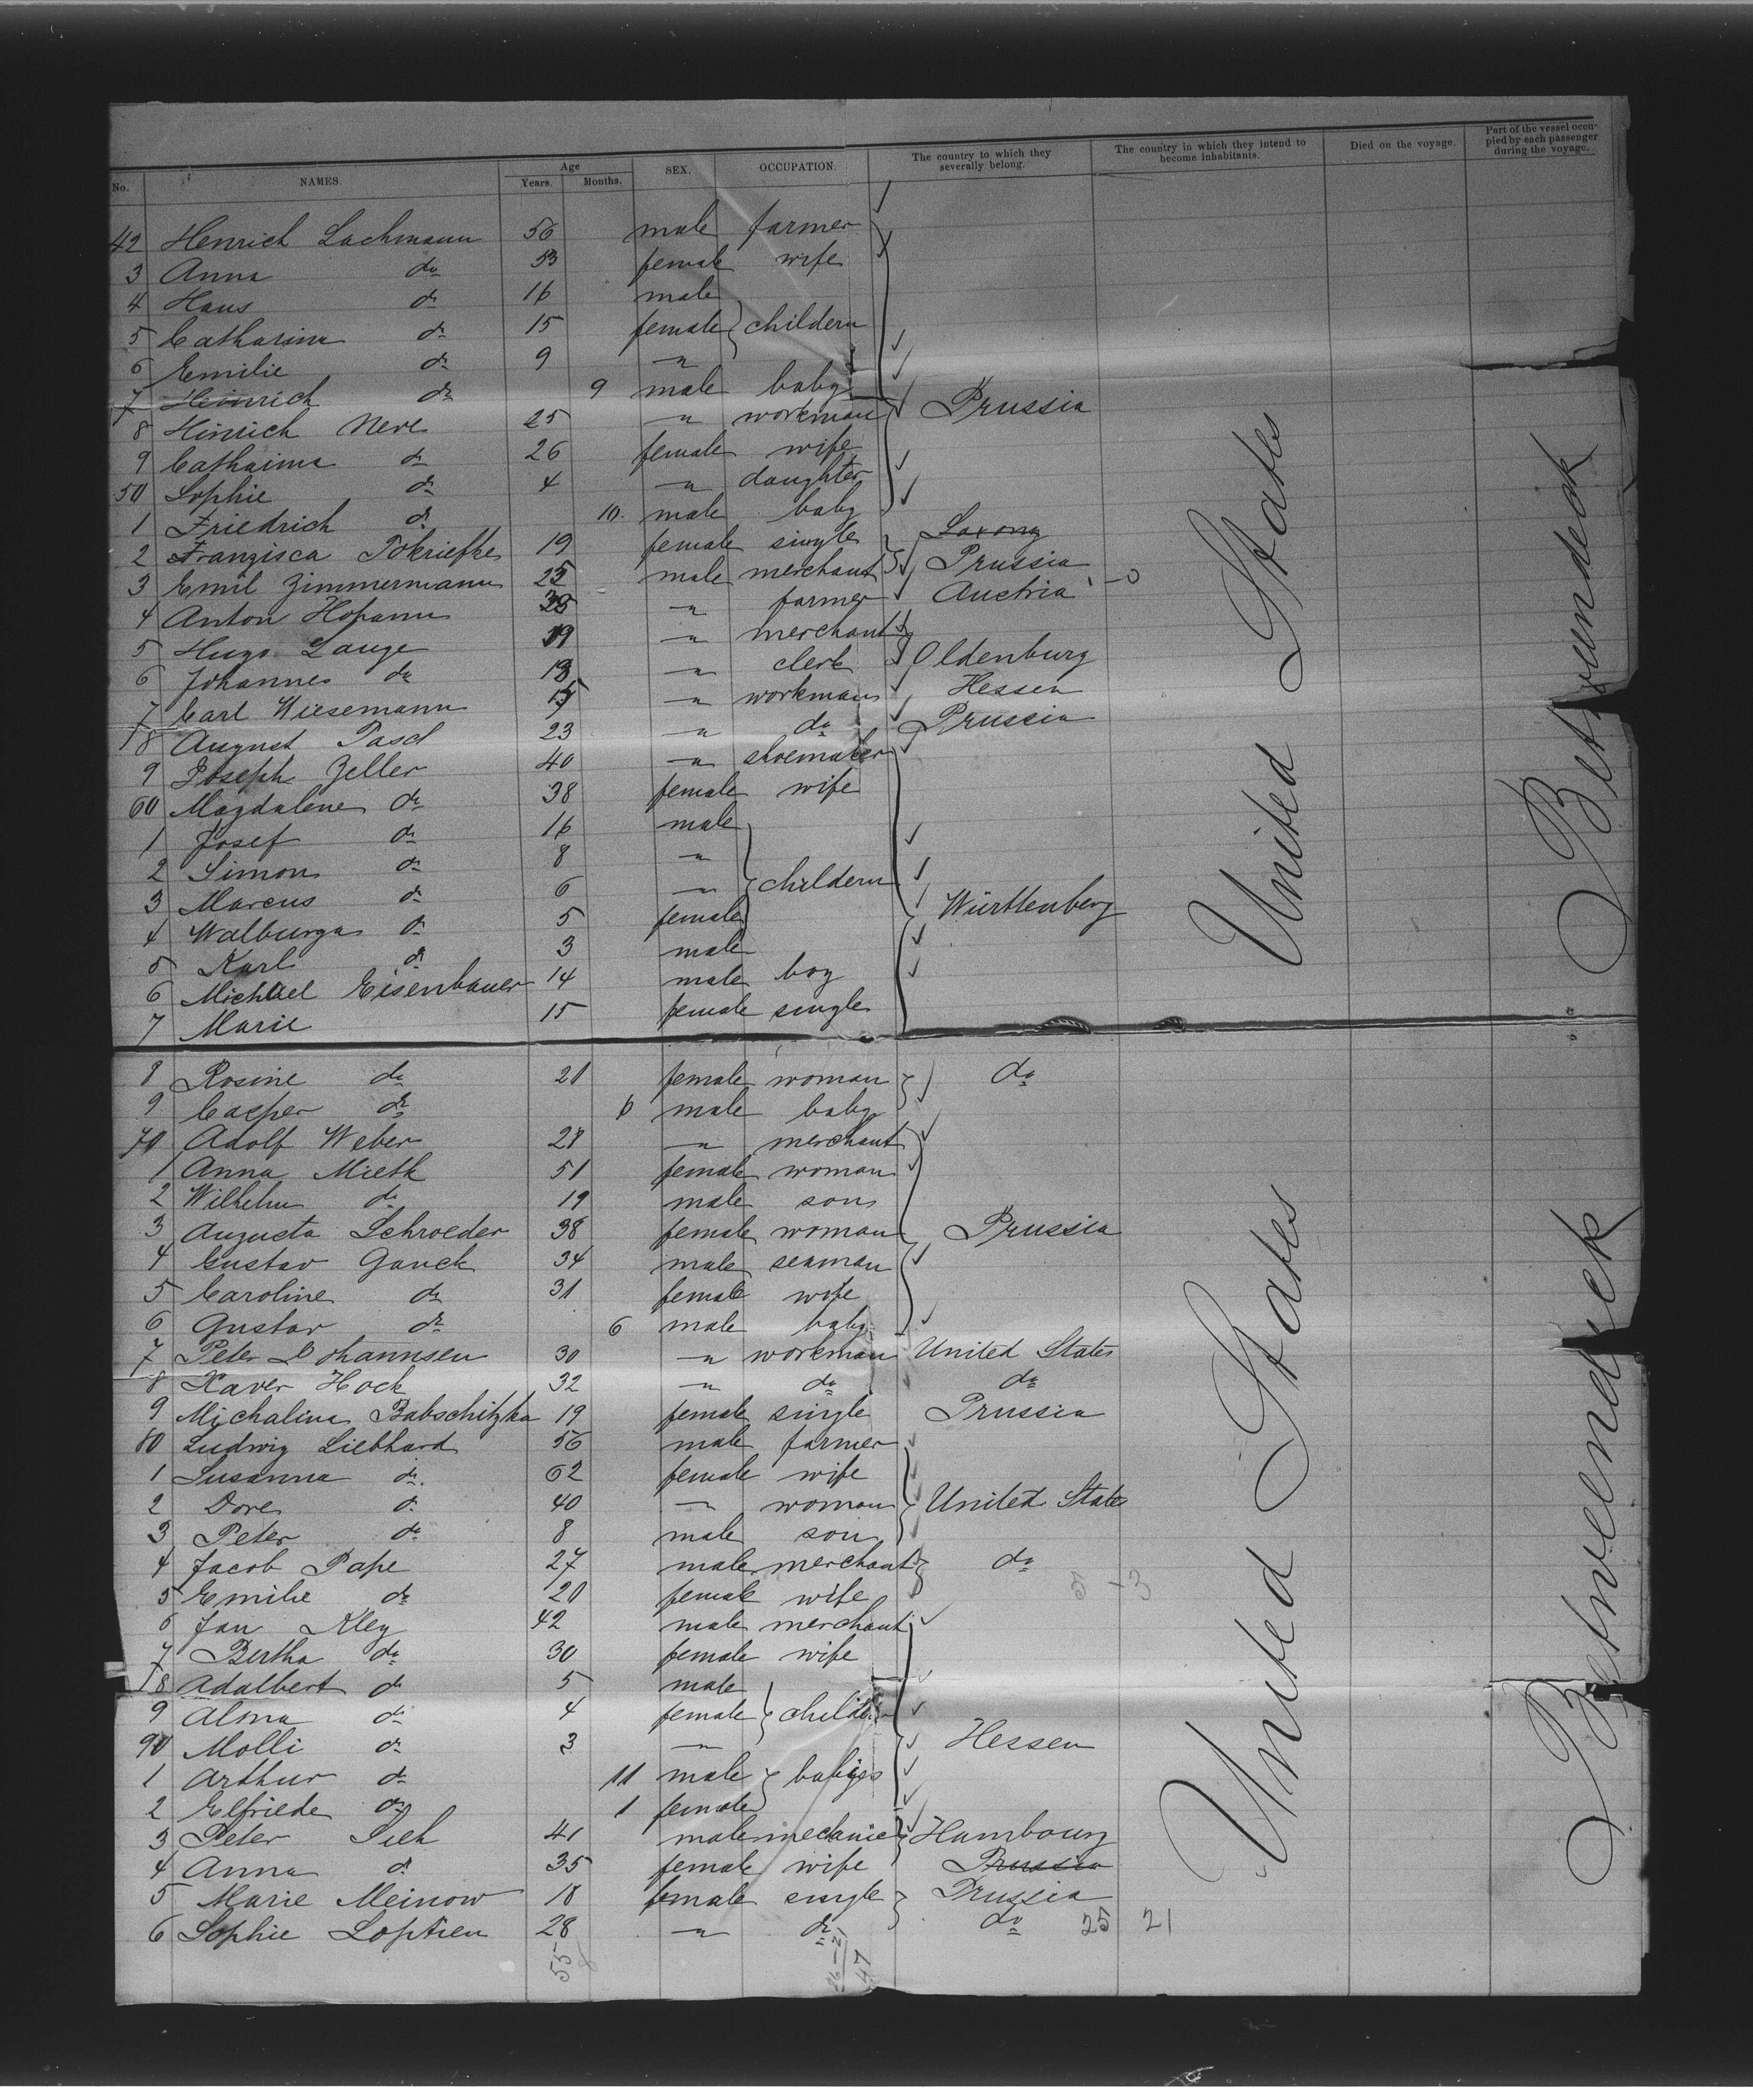 No. NAMES. Age Years. Months. SEX. OCCUPATION. The country to which they severally belong. The country in which they intend to become inhabitants. Died on the voyage. Part of the vessel occupied by each passenger during the voyage.
42 Henrich Lachmann 56 male farmer
3 Anna do 53 female wife
4 Hans do 16 male
5 Catharina do 15 female childern
6 Emilie do 9 "
7 Heinrich do 9 male baby
8 Hinrich Neve 25 " workman Prussia
9 Cathaima do 26 female wife
50 Sophie do 4 " daughter
1 Friedrich do 10. male baby
2 Franzisca Pokriefke 19 female single Saxony
3 Emil Zimmermann 25 male merchant Prussia
4 Anton Hofmann " farmer Austria
5 Hugo Lange 19 " merchant
6 Johannes do 13 " clerk Oldenburg
7 Carl Wiesemann 15 " workman Hessen
8 August Pasch 23 " do Prussia
9 Joseph Zeller 40 " shoemaker
60 Magdalene do 38 female wife
1 Josef do 16 male
2 Simon do 8 "
3 Marcus do 6 " childern
4 Walburga do 5 female Württenberg
5 Karl do 3 male
6 Michael Eisenbauer 14 male boy
7 Marie 15 female single
8 Rosine do 21 female woman do
9 Casper do 6 male baby
70 Adolf Weber 28 " merchant
1 Anna Mieth 51 female woman
2 Wilhelm do 19 male son
3 Augusta Schroeder 38 female woman Prussia
4 Gustav Ganek 34 male seaman
5 Caroline do 31 female wife
6 Gustav do 6 male baby
7 Peter Johannsen 30 " workman United States
8 Xaver Hock 32 " do do
9 Michalina Babschitzka 19 female single Prussia
80 Ludwig Liebhard 56 male farmer
1 Susanna do. 62 female wife
2 Dore do 40 " woman United States
3 Peter do 8 male son
4 Jacob Pape 27 male merchant do
5 Emilie do 20 female wife
6 Jan Kley 42 male merchant
7 Bertha do 30 female wife
8 Adalbert do 5 male
9 Alma do 4 female childern
90 Molli do 3 " Hessen
1 Arthur do 11 male babies
2 Elfriede do 1 female
3 Peter Sieh 41 male mecanic Hambourg
4 Anna do 35 female wife Prussia
5 Marie Meinow 18 female single Prussia
6 Sophie Loptien 28 " do do 25 21
United States
Betweendeck
United States
Betweendeck
55
47